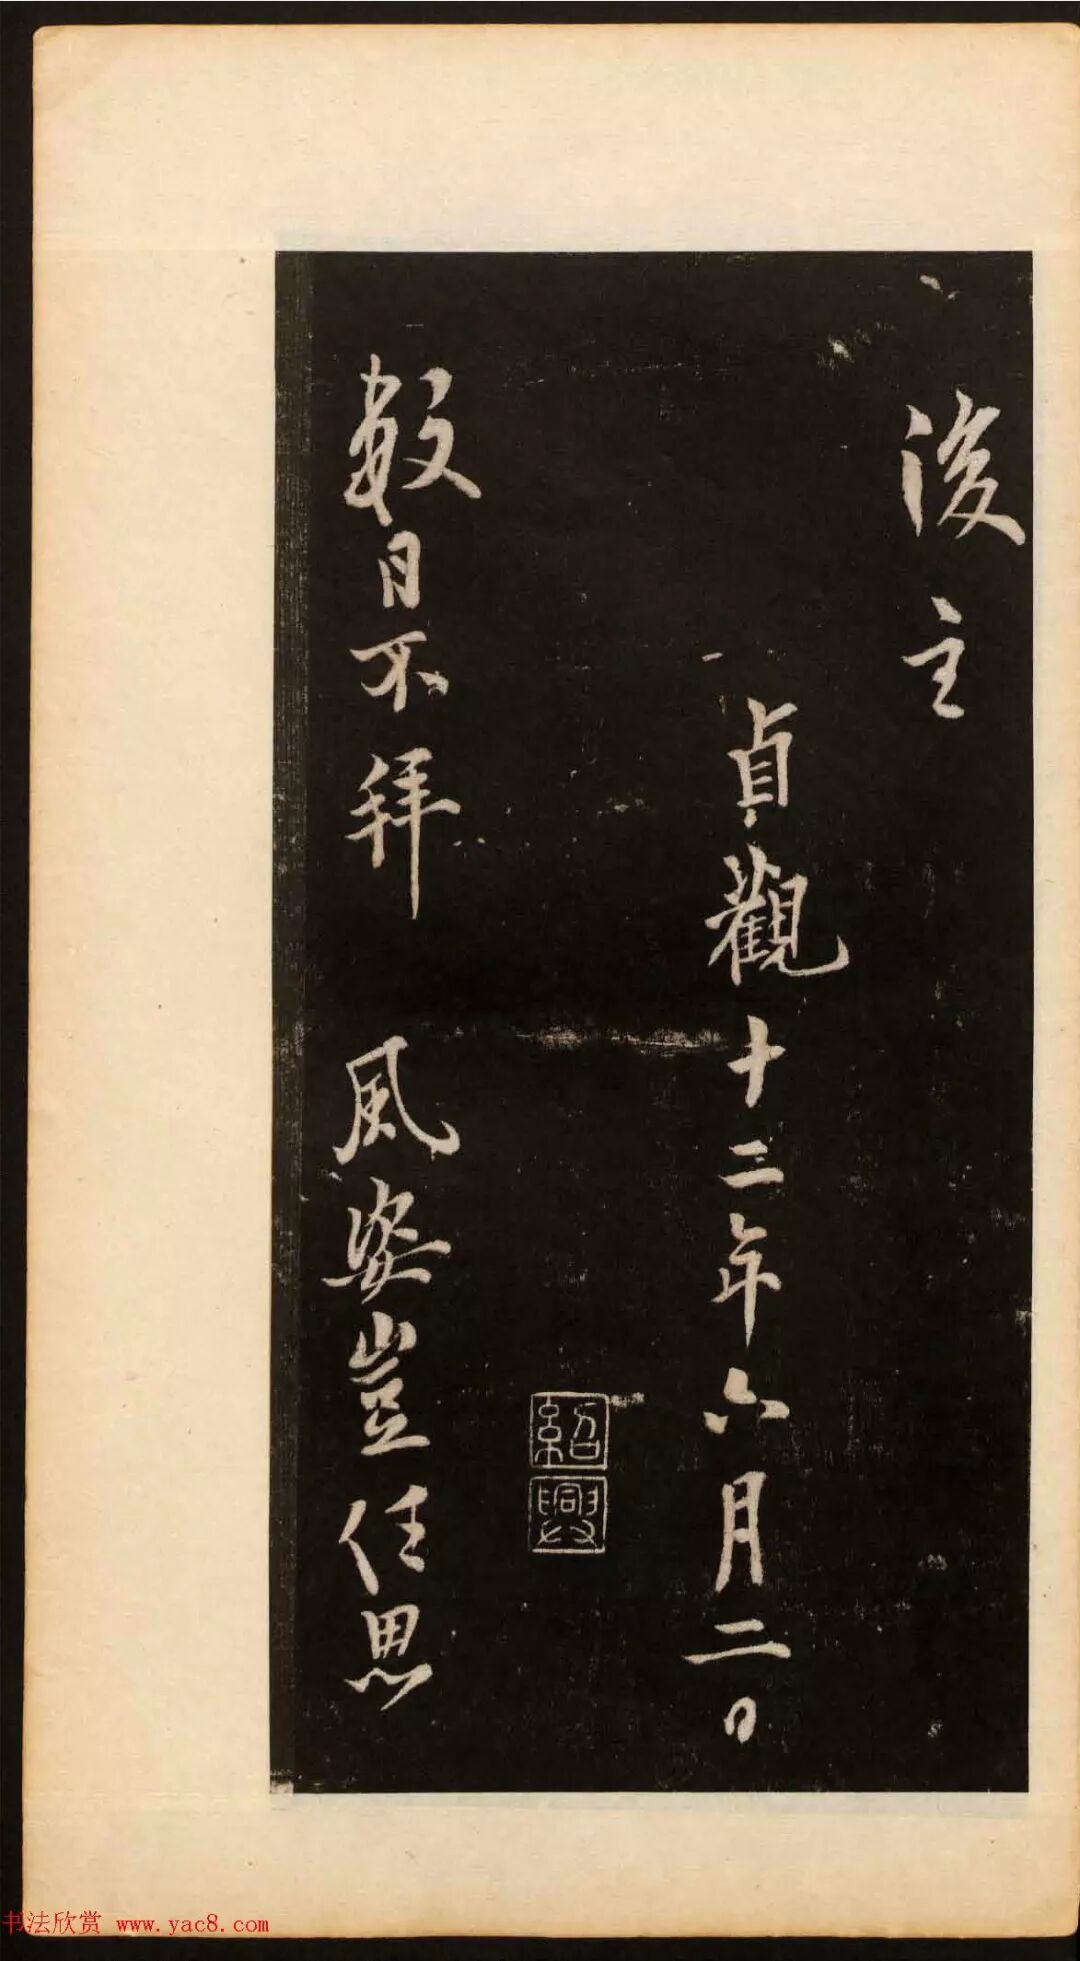 後主
貞觀十二年六月二日
紹興
數日不拜 風姿豈任思
书法欣赏 www.yac8.com